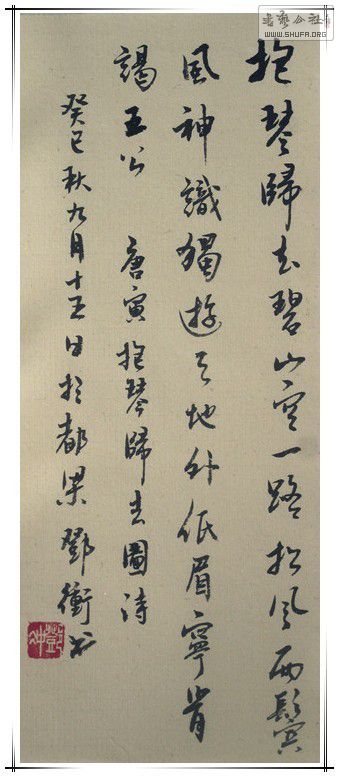 書藝公社
WWW.SHUFA.ORG
抱琴歸去碧山空一路松风兩鬢
風神識獨遊天地外低眉寧肯
謁王公 唐寅抱琴歸去圖詩
癸巳秋九月十五日於都梁鄧衝书